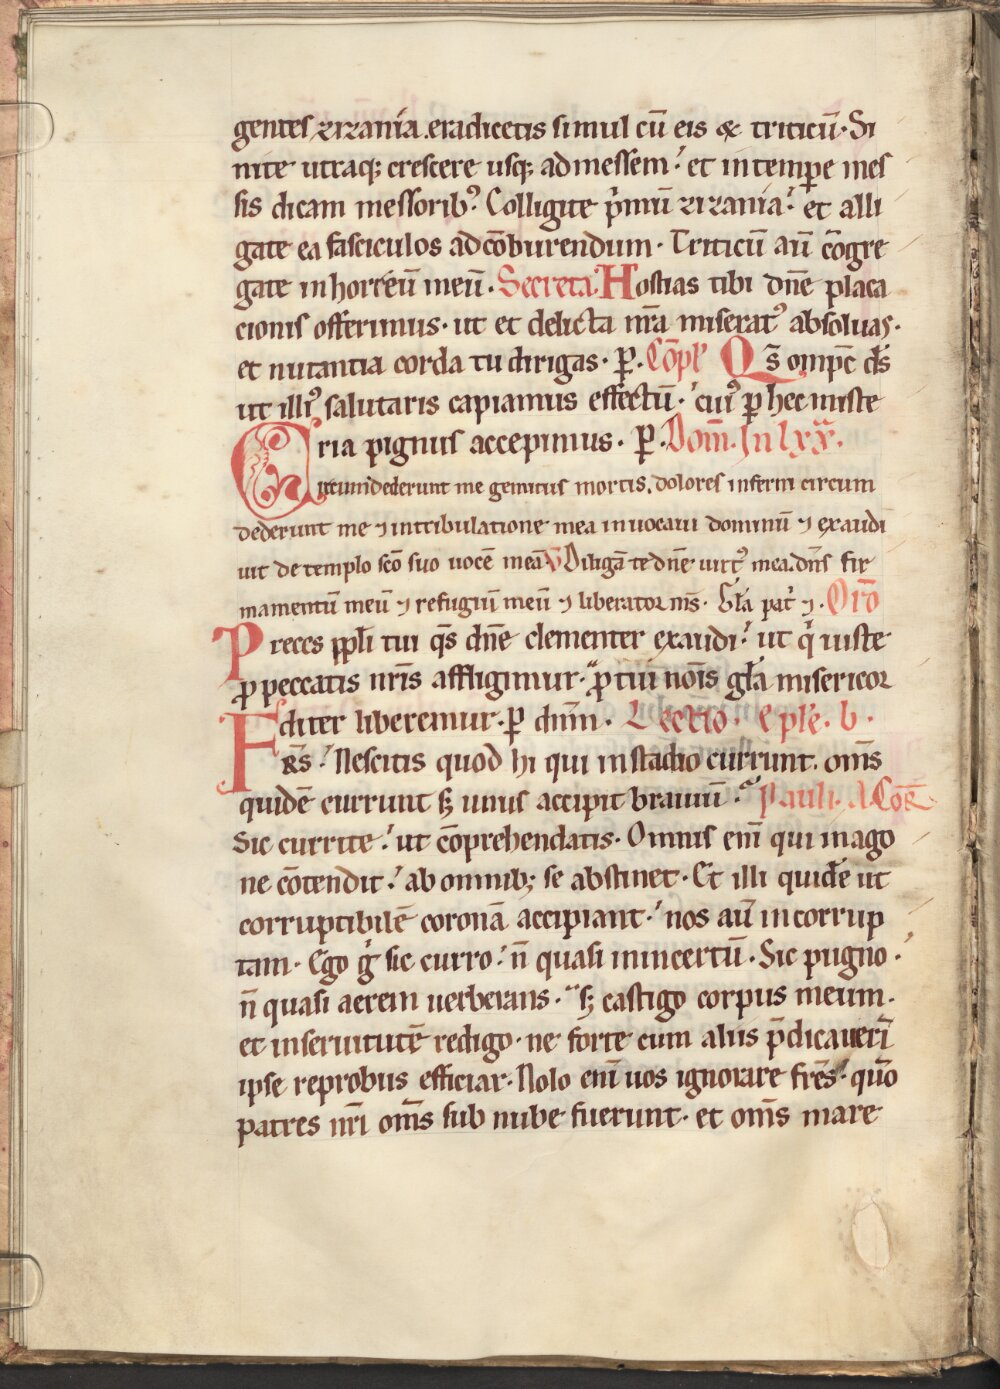 gentes zizania eradicetis simul cū eis & triticū. Si
nite utraq; crescere usq; ad messem. et in tempꝛe mes
sis dicam messorib⁹. Colligite p̄mū zizania. et alli
gate ea fasciculos ad cōburendum. Triticū aū cōgre
gate in horreū meū. Secreta. Hostias tibi dn̄e placa
cionis offerimus. ut et delicta nr̄a miserat⁹ absoluas.
et nutantia corda tu dirigas. ꝑ. Cōpl Q̄s omp̄c ds̄
ut illi⁹ salutaris capiamus effectū. cui⁹ ꝑ hec miste
ria pignus accepimus. ꝑ. Dom̄. In lxx.
Circumdederunt me gemitus mortis. dolores inferni circum
dederunt me ⁊ in tribulatione mea inuocaui dominū ⁊ exaudi
uit de templo sc̄o suo uocē meā V Diligā te dn̄e uirt⁹ mea. dn̄s fir
mamentū meū ⁊ refugiū meū ⁊ liberator ms̄. Gl̄a pat' ⁊. Oro
Preces ppl̄i tui q̄s dn̄e clementer exaudi. ut q' iuste
ꝓ peccatis nr̄is affligimur. ꝓ tui nōis gl̄a misericor
diter liberemur. ꝑ dnm̄. Lectio. Eple. b.
Fr̄s. Nescitis quod hi qui in stadio currunt. om̄s
quidē currunt s; unus accipit brauiū. Pauli. A Cor̄
Sic currite. ut cōprehendatis. Omnis eni qui in ago
ne cōtendit. ab omnib; se abstinet. Et illi quidē ut
corruptibilē coronā accipiant. nos aū incorrup
tam. Ego g' sic curro. n̄ quasi in incertū. Sic pugno.
n̄ quasi aerem uerberans. s; castigo corpus meum.
et in seruitutē redigo. ne forte cum aliis p̄dicaueri
ipse reprobus efficiar. Nolo eni uos ignorare fr̄es. quō
patres nr̄i om̄s sub nube fuerunt. et om̄s mare